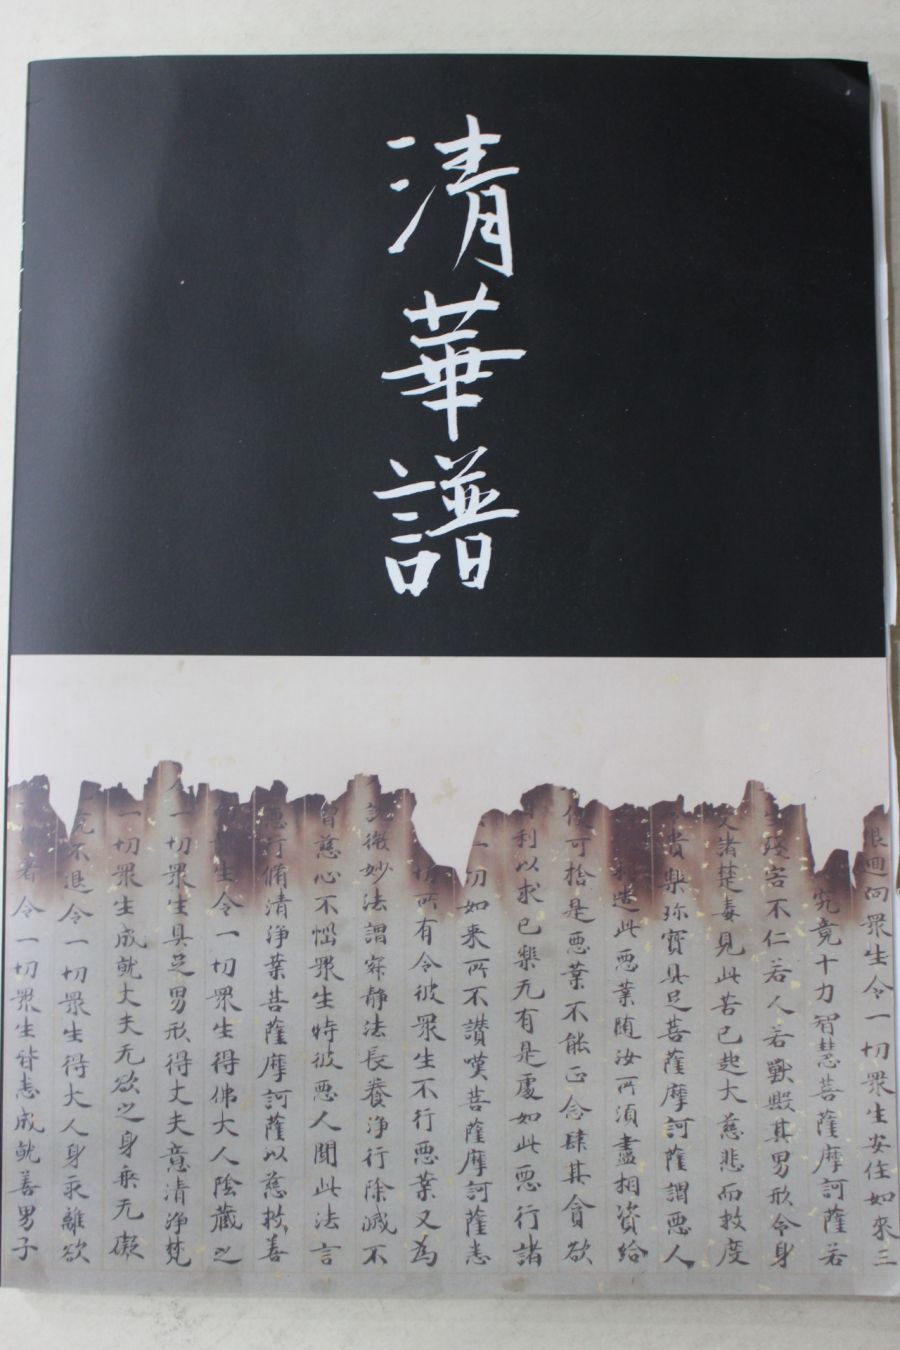 清華譜
迴向眾生令一切眾生安住如來三
究竟十力智慧菩薩摩訶薩若
害不仁若人若獸毀其男形令身
諸楚毒見此苦已起大慈悲而救度
貴樂珎寶具足菩薩摩訶薩謂惡人
造此惡業随汝所須盡相資給
可捨是惡業不能正念肆其貪欲
利以求已樂无有是處如此惡行諸
一切如来所不讃嘆菩薩摩訶薩志
切所有令彼眾生不行惡業又為
說微妙法謂寂静法長養浄行除滅不
慈心不惱眾生時彼惡人聞此法言
行脩清浄業菩薩摩訶薩以慈救善
生令一切眾生得佛大人陰藏之
一切眾生具足男形得丈夫意清浄梵
一切眾生成就丈夫无欲之身乘无礙
不退令一切眾生得大人身永離欲
者令一切眾生皆志成就善男子